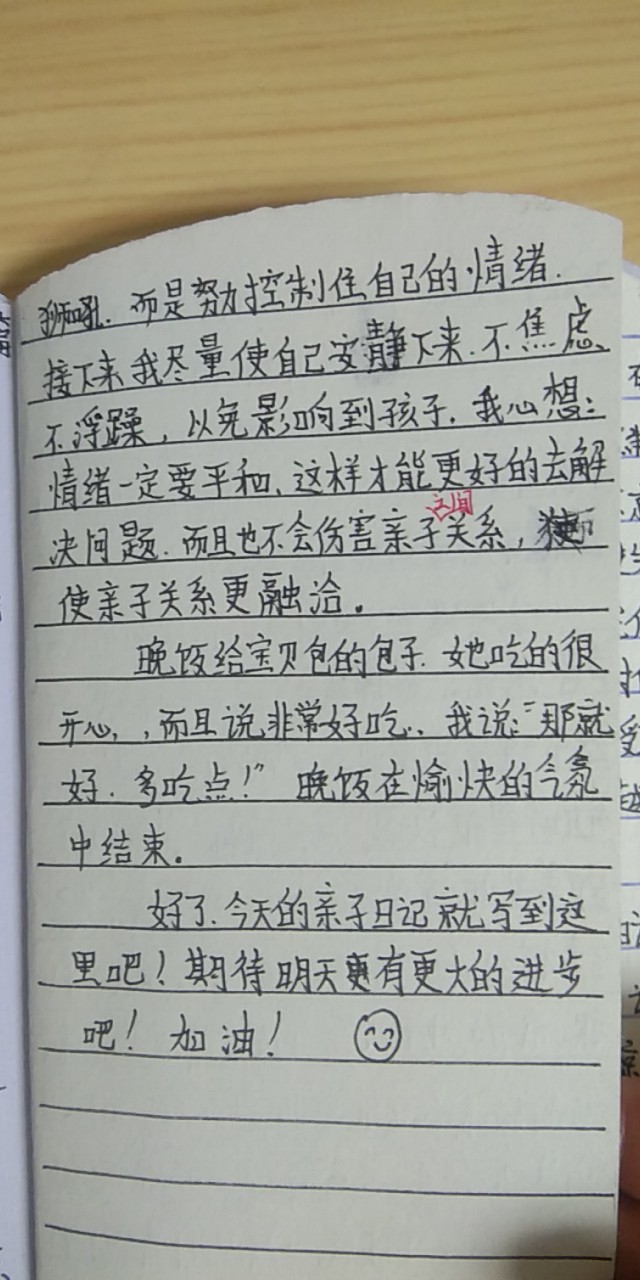 狮吼. 而是努力控制住自己的情绪.
接下来我尽量使自己安静下来.不焦虑、
不浮躁，以免影响到孩子.我心想:
情绪一定要平和、这样才能更好的去解
决问题.而且也不会伤害亲子之间关系，
使亲子关系更融洽。
晚饭给宝贝包的包子.她吃的很
开心，,而且说非常好吃.. 我说:"那就
好.多吃点!" 晚饭在愉快的气氛
中结束。
好了.今天的亲子日记就写到这
里吧!期待明天更有更大的进步
吧! 加油!